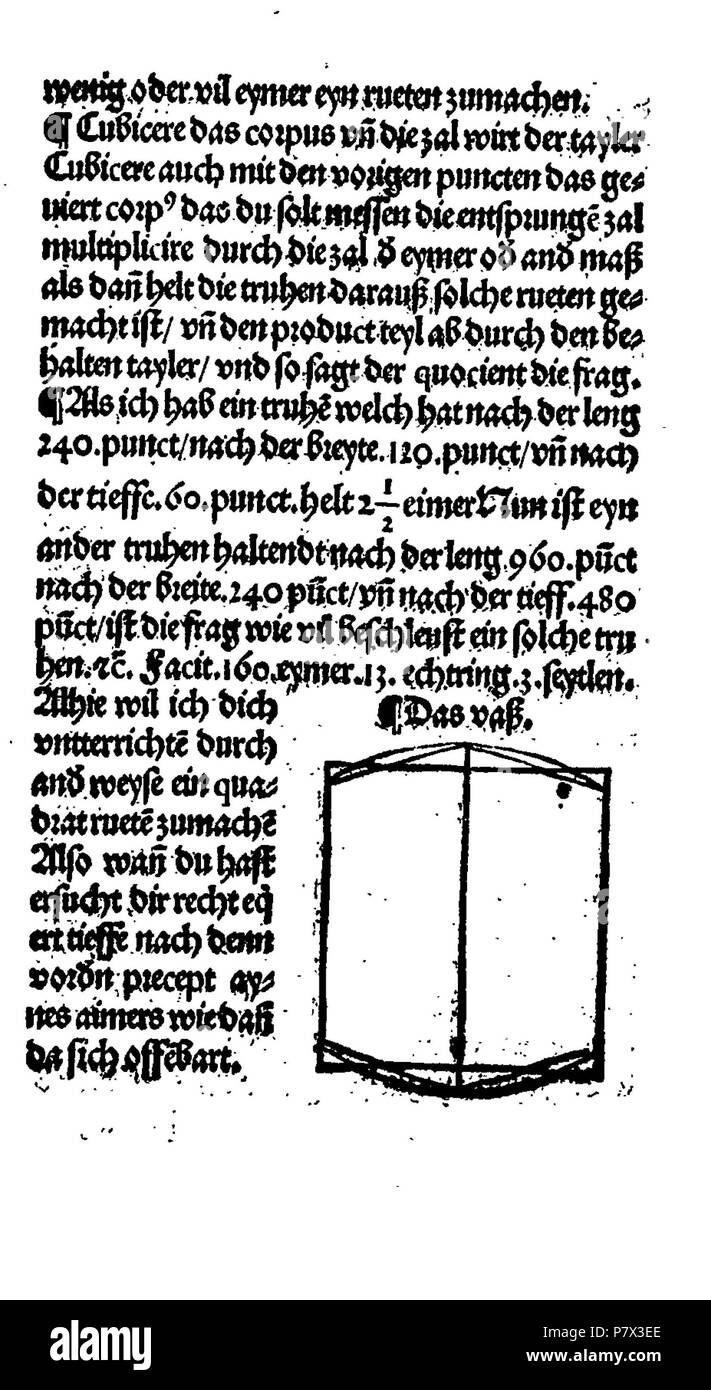 wenig oder vil eymer eyn rueten zumachen.
¶ Cubicere das corpus vñ die zal wirt der tayler
Cubicere auch mit den vorigen puncten das ge⸗
uiert corpꝰ das du solt messen die entsprungẽ zal
multiplicire durch die zal đ eymer ođ anđ maß
als dañ helt die truhen darauß solche rueten ge⸗
macht ist/ vñ den product teyl ab durch den be⸗
halten tayler/ vnd so sagt der quocient die frag.
¶ Als ich hab ein truhẽ welch hat nach der leng
240. punct/ nach der breyte. 120. punct/ vñ nach
der tieffe. 60. punct. helt 2 1/2 eimer Nun ist eyn
ander truhen haltendt nach der leng. 960. pũct
nach der breite. 240 pũct/ vñ nach der tieff. 480
pũct/ ist die frag wie vil beschleust ein solche tru
hen. ⁊c̃. Facit. 160. eymer. 13. echtring. 3. seytlen.
Alhie wil ich dich
vntterrichtẽ durch
anđ weyse ein qua⸗
drat ruetẽ zumachẽ
Also wañ du hast
ersucht dir recht
ert tieffe nach denn
vorđn precept ay⸗
nes aimers wie daß
da sich offẽbart.
¶ Das vaß.
alamy
Image ID: P7X3EE
www.alamy.com